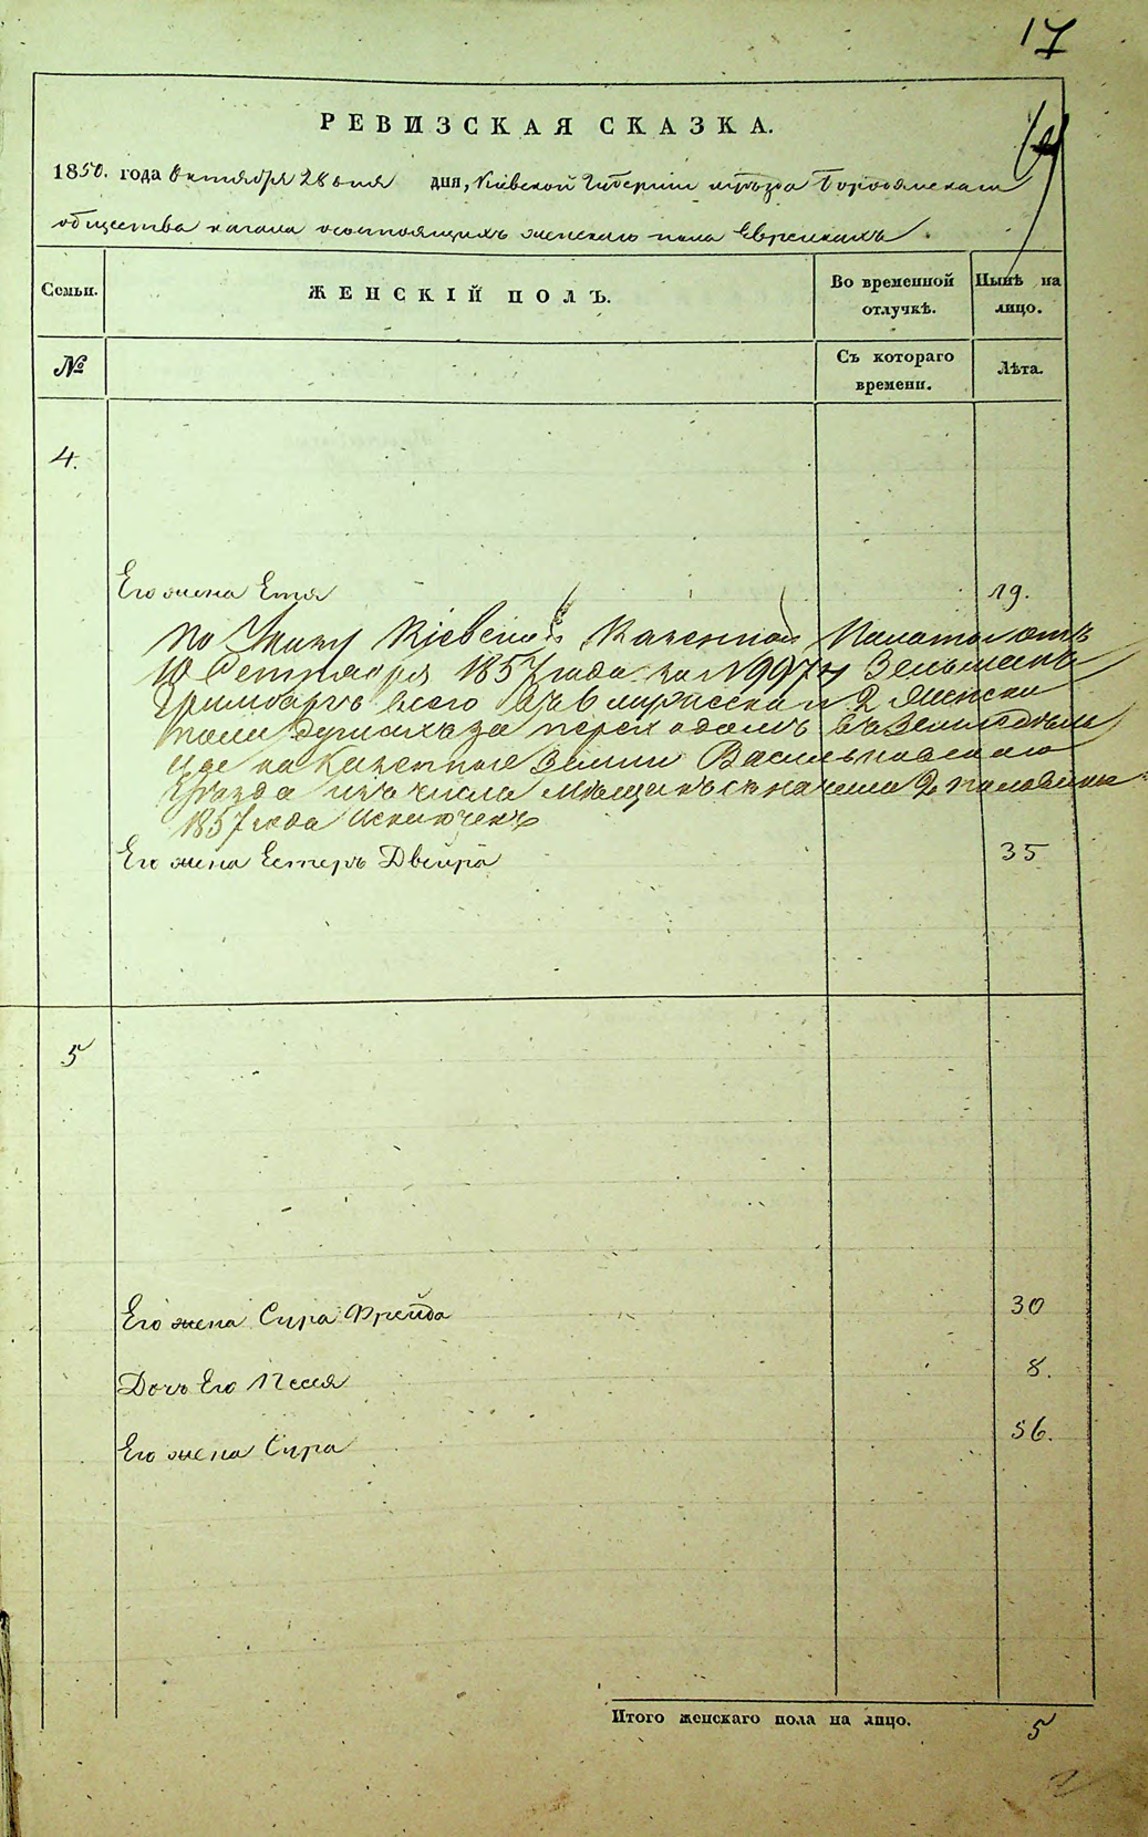 17
РЕВИЗСКАЯ СКАЗКА.
1850. года Октября 28 дня дня, Кіевской Губерніи и уѣзда Бородянскаго
общества кагала о состоящихъ женскаго пола Евреикахъ.
Семьи.
ЖЕНСКІЙ ПОЛЪ.
Во временной отлучкѣ.
Нынѣ на лицо.
№
Съ котораго времени.
Лѣта.
4.
Его жена Етя 19.
По Указу Кіевской Казенной Палаты отъ
10 Сентября 1857 года за № 9974 Зельманъ
Гримбаргъ всего въ 6 мужеска и 2 женска
пола душахъ за переходомъ въ Земледельцы
на Казенные Земли Васильковскаго
Уѣзда изъ числа мѣщанъ съ начала 2 половины
1857 года исключенъ
Его жена Естеръ Двейра 35
5
Его жена Сура Фрейда 30
Дочь Его Песя 8.
Его жена Сура 56.
Итого женскаго пола на лицо. 5